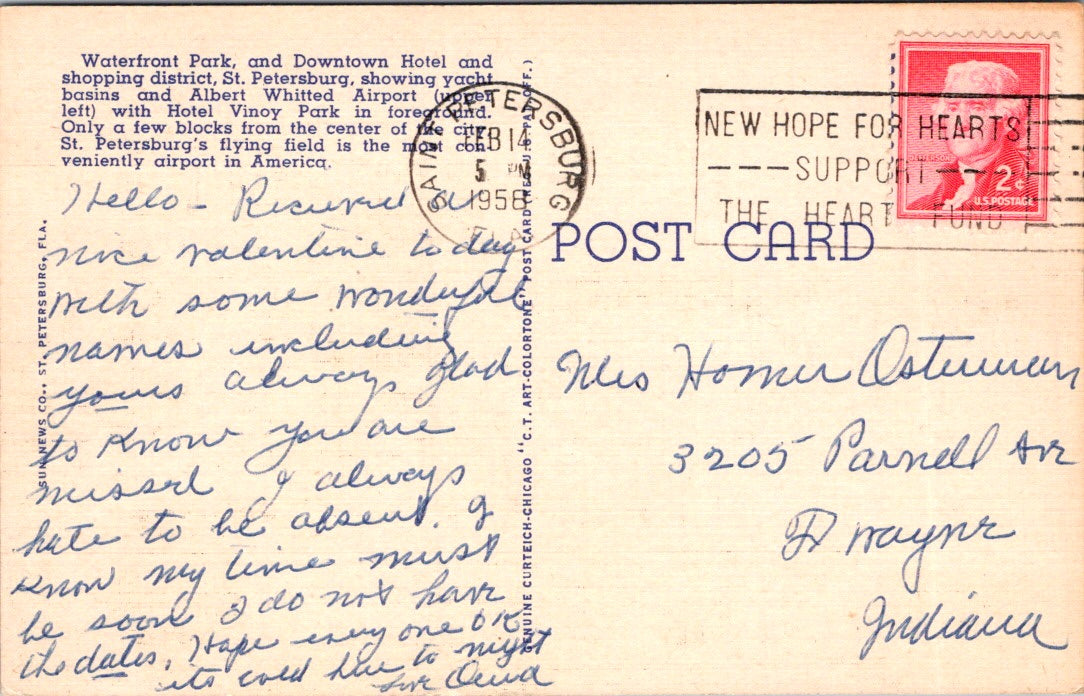 Waterfront Park, and Downtown Hotel and
shopping district, St. Petersburg, showing yacht
basins and Albert Whitted Airport (upper
left) with Hotel Vinoy Park in foreground.
Only a few blocks from the center of the city
St. Petersburg's flying field is the most con-
veniently airport in America.
SAINT PETERSBURG
FEB 14
5 PM
1956
FLA.
NEW HOPE FOR HEARTS
---SUPPORT---
THE HEART FUND
JEFFERSON
2¢
U.S. POSTAGE
POST CARD
SUN NEWS CO., ST. PETERSBURG, FLA.
GENUINE CURTEICH-CHICAGO "C.T. ART-COLORTONE" POST CARD (REG. U.S. PAT. OFF.)
Hello - Received a
nice valentine to day
with some wonderful
names including
yours always glad
to know you are
missed I always
hate to be absent. I
know my time must
be soon I do not have
the dates. Hope every one OK
its cold here to night
Love
Mrs Homer Osterman
3205 Parnell Ave
Ft Wayne
Indiana